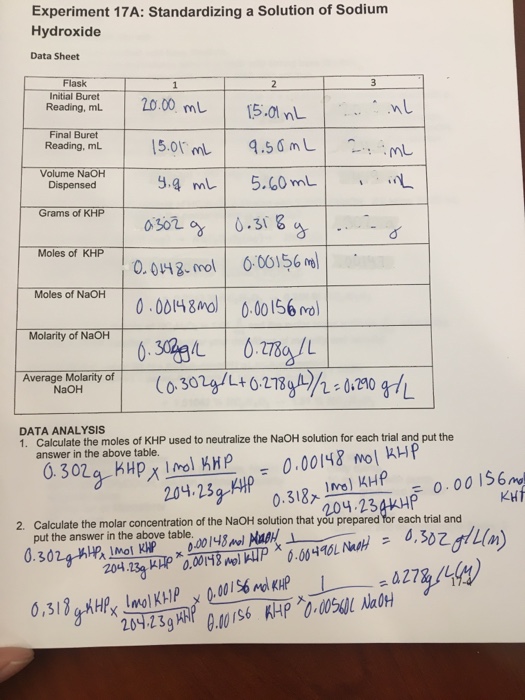 Experiment 17A: Standardizing a Solution of Sodium
Hydroxide
Data Sheet
Flask 1 2 3
Initial Buret Reading, mL 20.00 mL 15.01 mL mL
Final Buret Reading, mL 15.01 mL 9.50 mL mL
Volume NaOH Dispensed 4.9 mL 5.60 mL
Grams of KHP 0.302 g 0.318 g g
Moles of KHP 0.00148 mol 0.00156 mol
Moles of NaOH 0.00148 mol 0.00156 mol
Molarity of NaOH 0.302 g/L 0.278 g/L
Average Molarity of NaOH (0.302g/L+0.278g/L)/2 = 0.290 g/L
DATA ANALYSIS
1. Calculate the moles of KHP used to neutralize the NaOH solution for each trial and put the
answer in the above table.
0.302g KHP x 1 mol KHP / 204.23g KHP = 0.00148 mol KHP
0.318 x 1 mol KHP / 204.23g KHP = 0.00156 mol KHP
2. Calculate the molar concentration of the NaOH solution that you prepared for each trial and
put the answer in the above table.
0.302g KHP x 1 mol KHP / 204.23g KHP x 0.00148 mol NaOH / 0.00148 mol KHP x 1 / 0.00496L NaOH = 0.302 g/L (M)
0.318 g KHP x 1 mol KHP / 204.23g KHP x 0.00156 mol KHP / 0.00156 KHP x 1 / 0.00560L NaOH = 0.278g/L (M)